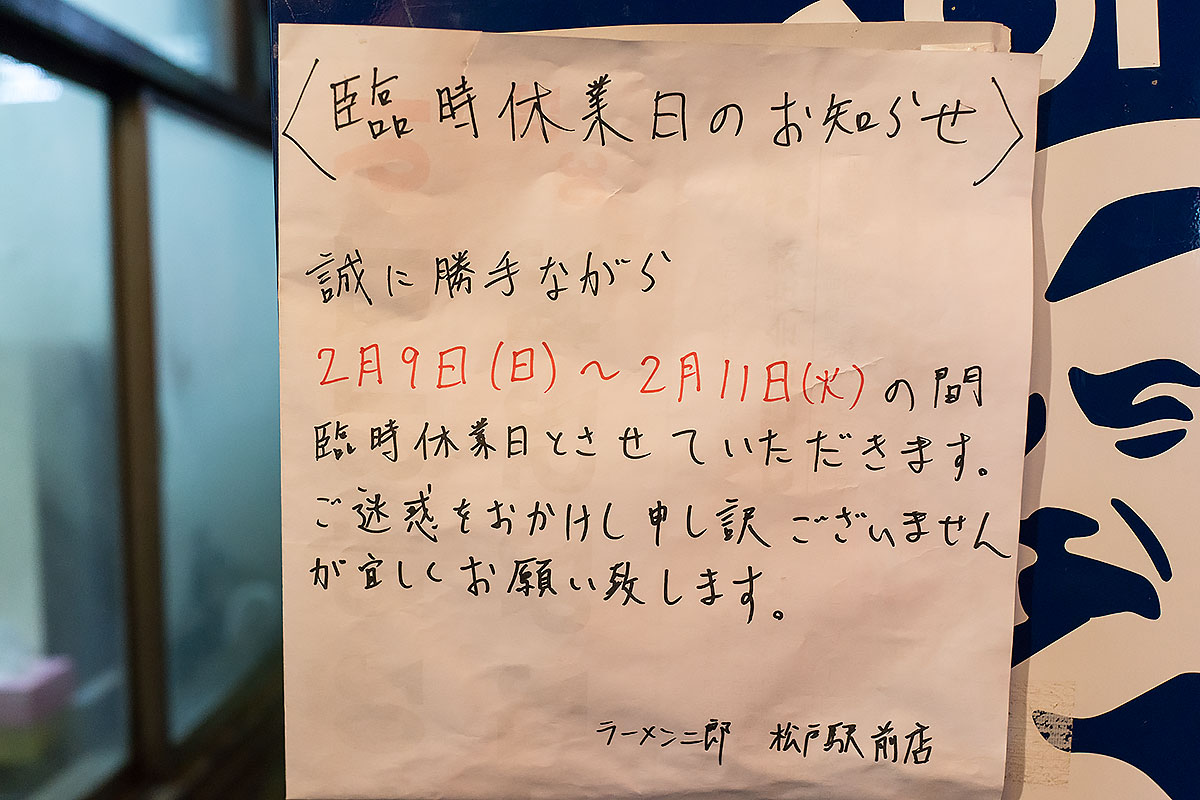 〈臨時休業日のお知らせ〉
誠に勝手ながら
2月9日(日)～2月11日(火)の間
臨時休業日とさせていただきます。
ご迷惑をおかけし申し訳ございません
が宜しくお願い致します。
ラーメン二郎 松戸駅前店